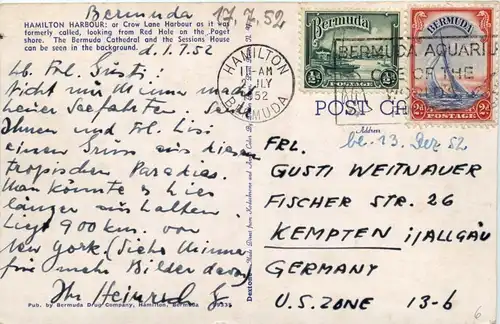 Bermuda 17.7.52
HAMILTON HARBOUR: or Crow Lane Harbour as it was
formerly called, looking from Red Hole on the Paget
shore. The Bermuda Cathedral and the Sessions House
can be seen in the background.
d. 1.7.52
Lb. Frl. Gusti!
Nicht nur Minna macht
Seefahrten
Ihnen und Frl. Lisi
einen Gruss aus diesem
tropischen Paradies.
Man könnte es hier
länger aushalten.
Liegt 900 km. von
New York (Siehe Minna
für mehr Bilder davon)
Ihr Heinrich
Pub. by Bermuda Drug Company, Hamilton, Bermuda
HAMILTON
11-AM
JULY
1952
BERMUDA
Bermuda
POSTAGE
½d
BERMUDA
2d 2d
POSTAGE
BERMUDA AQUARIUM
ONE OF THE
POST CARD
Address
be. 13. Dez 52
FRL.
GUSTI WEITNAUER
FISCHER STR. 26
KEMPTEN i/ALLGÄU
GERMANY
U.S. ZONE 13-b
6